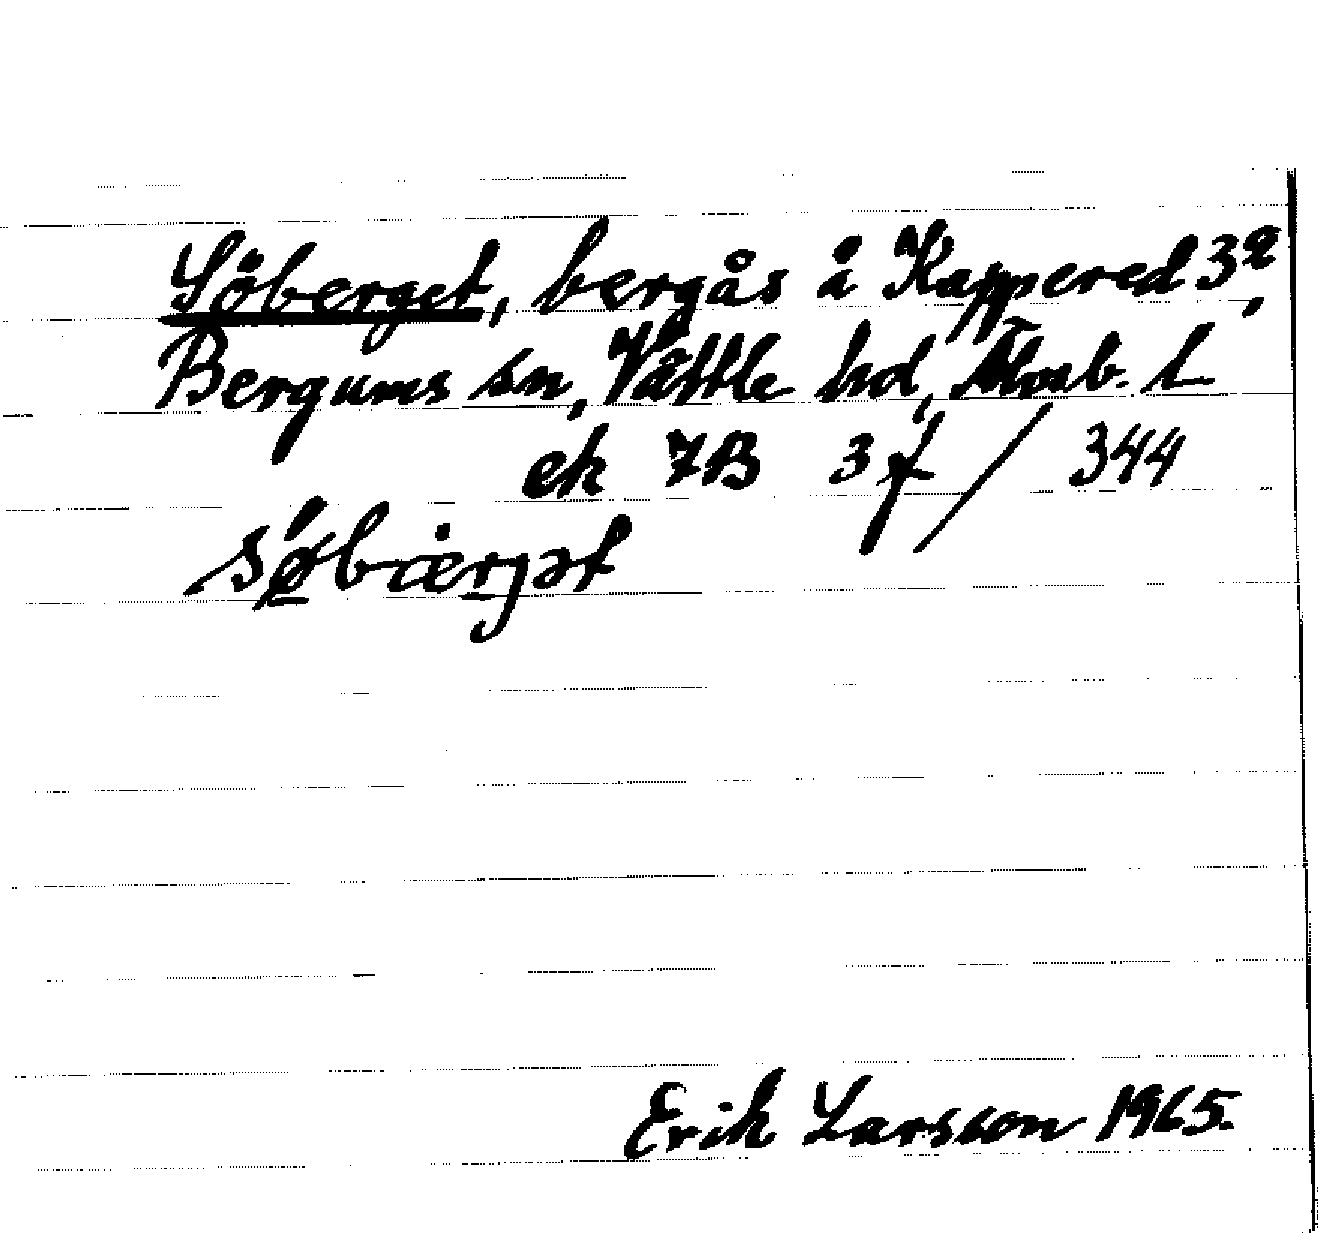 Söberget, bergås å Kappered 3²,
Bergums sn, Vättle hd, Älvsb. l.
ek 7B 3f / 344
Erik Larsson 1965.